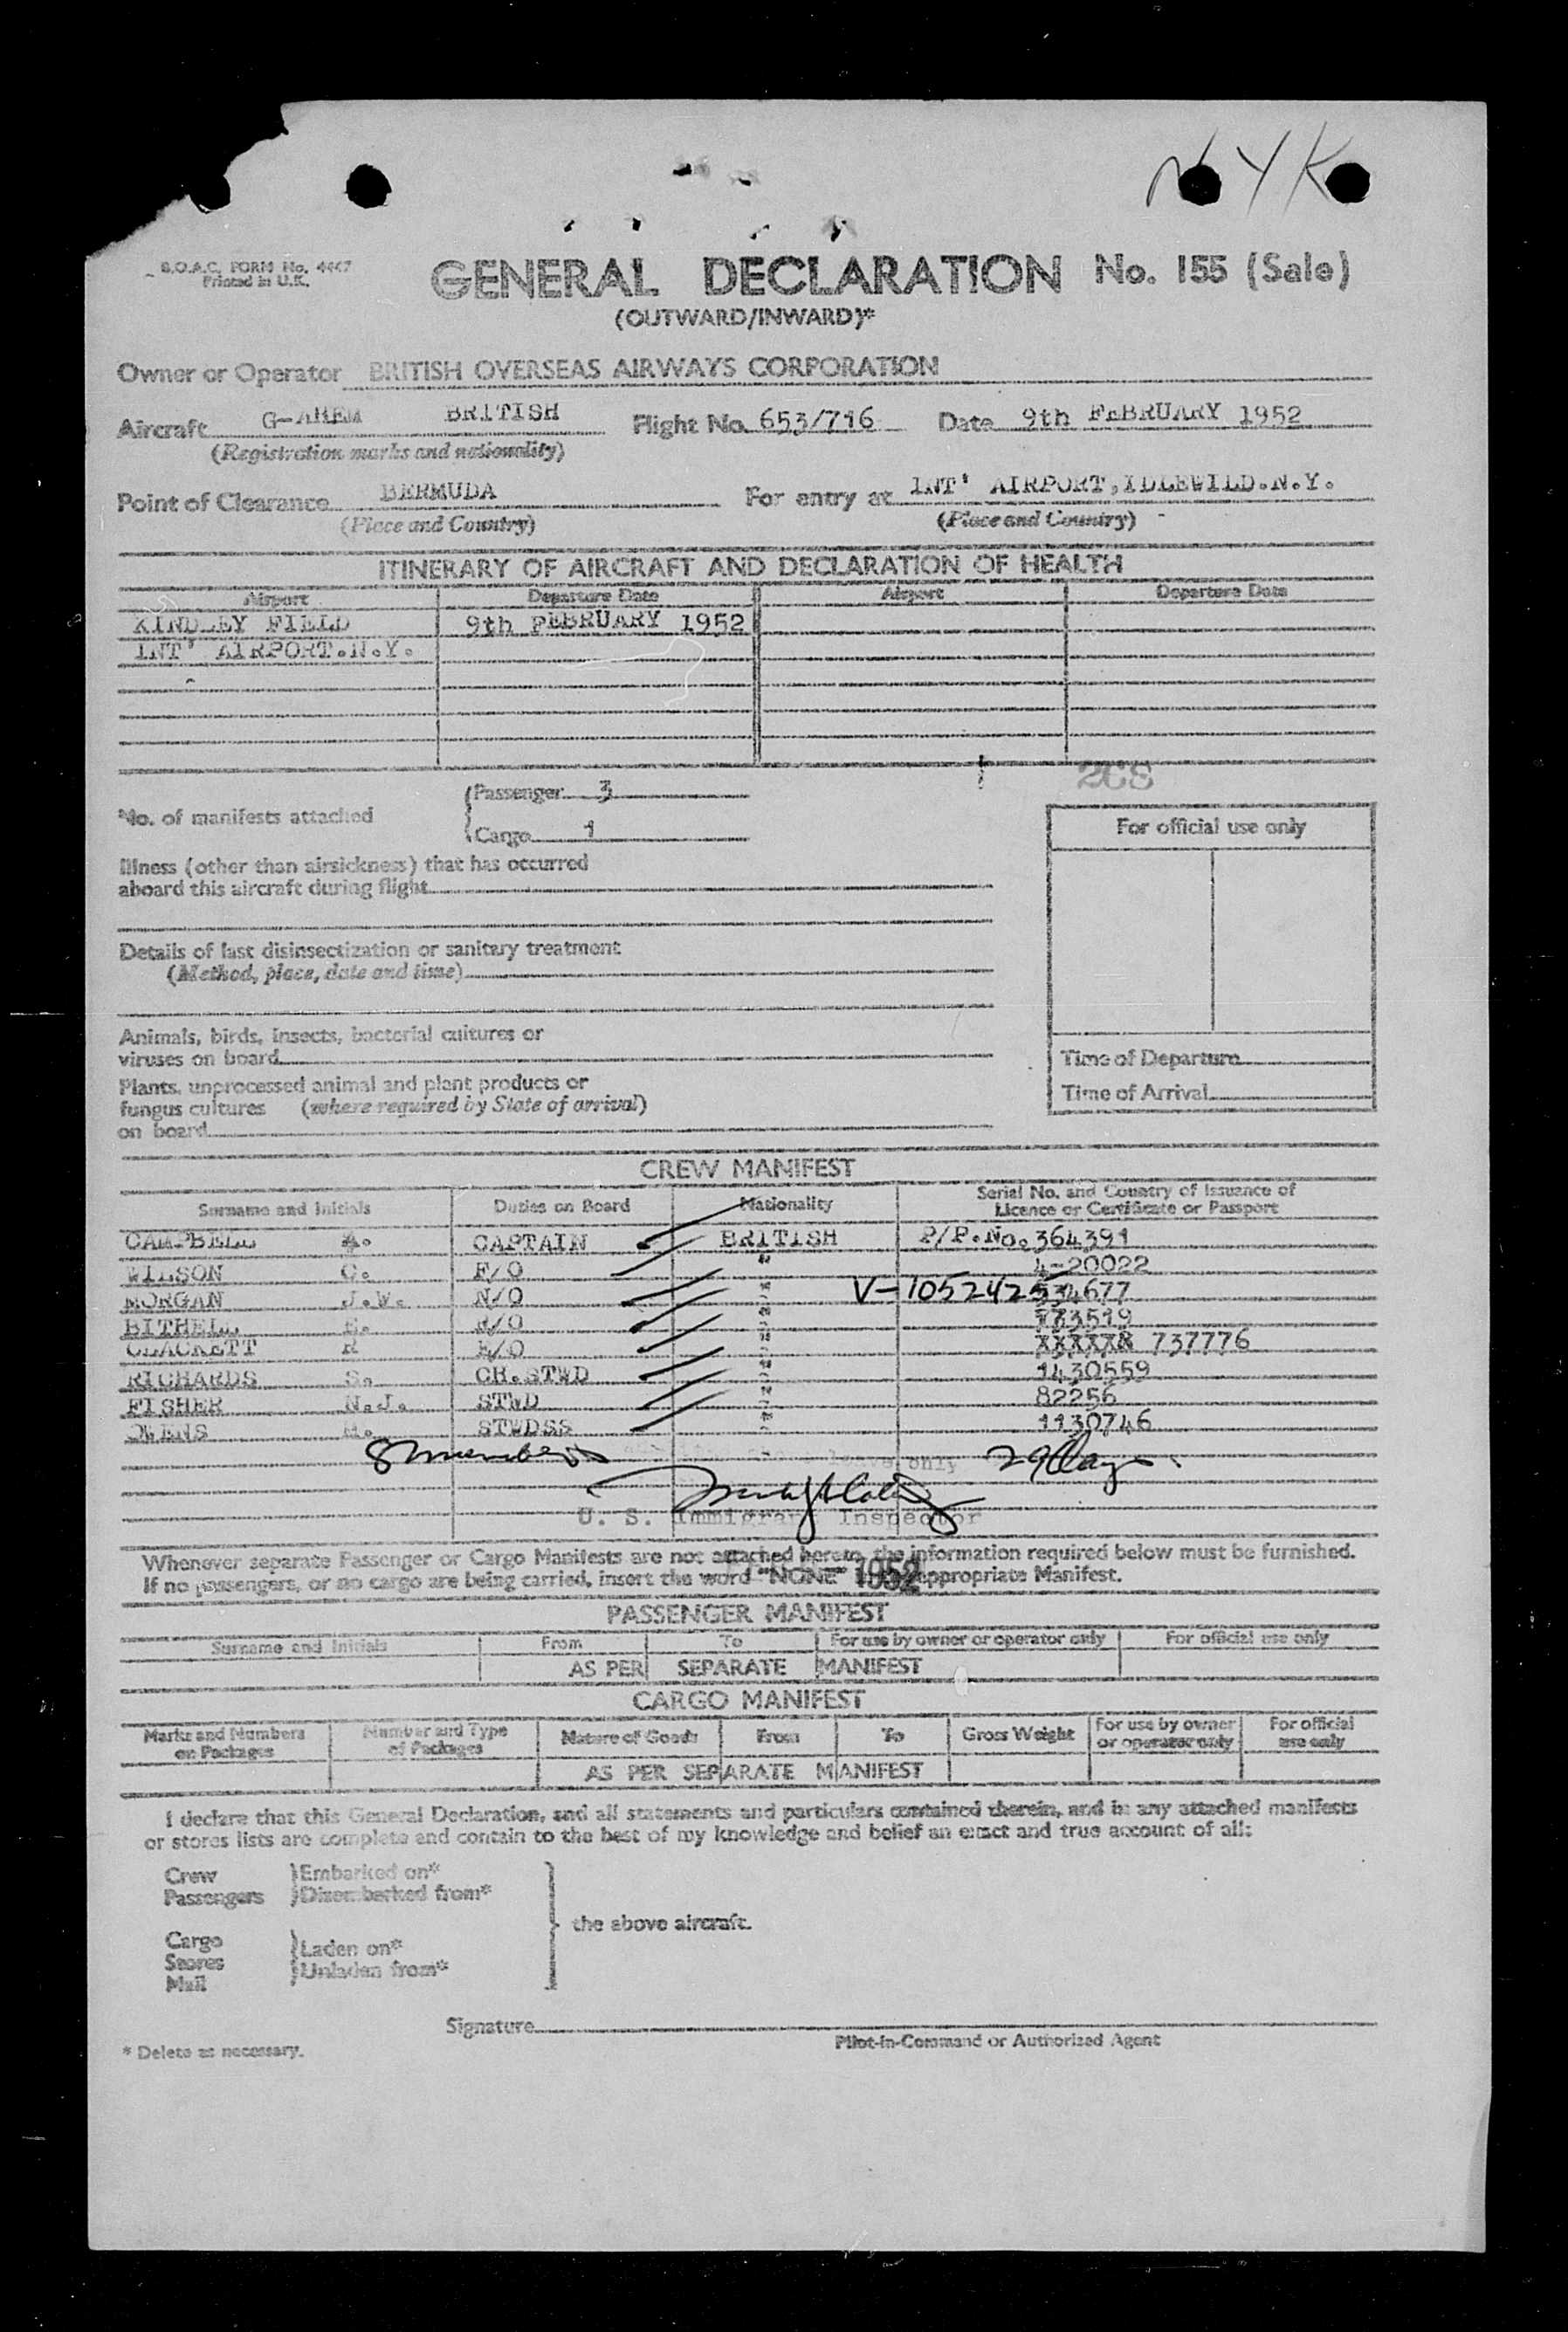 N Y K
B.O.A.C. FORM No. 4447
Printed in U.K.
GENERAL DECLARATION No. 155 (Sale)
(OUTWARD/INWARD)*
Owner or Operator BRITISH OVERSEAS AIRWAYS CORPORATION
Aircraft G-AHEM BRITISH Flight No. 653/716 Date 9th FEBRUARY 1952
(Registration marks and nationality)
Point of Clearance BERMUDA For entry at INT' AIRPORT,IDLEWILD.N.Y.
(Place and Country) (Place and Country)
ITINERARY OF AIRCRAFT AND DECLARATION OF HEALTH
Airport Departure Date Airport Departure Date
KINDLEY FIELD 9th FEBRUARY 1952
INT' AIRPORT.N.Y.
No. of manifests attached
Passenger 3
Cargo 1
For official use only
Illness (other than airsickness) that has occurred
aboard this aircraft during flight
Details of last disinsectization or sanitary treatment
(Method, place, date and time)
Animals, birds, insects, bacterial cultures or
viruses on board
Time of Departure
Plants, unprocessed animal and plant products or
fungus cultures (where required by State of arrival)
on board
Time of Arrival
CREW MANIFEST
Surname and Initials Duties on Board Nationality Serial No. and Country of Issuance of
Licence or Certificate or Passport
CAMPBELL A. CAPTAIN BRITISH P/P.No.364391
WILSON G. F/O " 4-20022
MORGAN J.W. N/O " V-1052425 534677
BITHELL E. R/O " 773519
CLACKETT R E/O " XXXXXX 737776
RICHARDS S. CH.STWD " 1430559
FISHER N.J. STWD " 82256
OWENS M. STWDSS " 1130746
8 members leave only 29 days
U. S. Immigrant Inspector
Whenever separate Passenger or Cargo Manifests are not attached hereto, the information required below must be furnished.
If no passengers, or no cargo are being carried, insert the word "NONE" 1952 appropriate Manifest.
PASSENGER MANIFEST
Surname and Initials From To For use by owner or operator only For official use only
AS PER SEPARATE MANIFEST
CARGO MANIFEST
Marks and Numbers on Packages Number and Type of Packages Nature of Goods From To Gross Weight For use by owner or operator only For official use only
AS PER SEPARATE MANIFEST
I declare that this General Declaration, and all statements and particulars contained therein, and in any attached manifests
or stores lists are complete and contain to the best of my knowledge and belief an exact and true account of all:
Crew Embarked on*
Passengers Disembarked from*
the above aircraft.
Cargo Laden on*
Stores Unladen from*
Mail
Signature
Pilot-in-Command or Authorized Agent
* Delete as necessary.